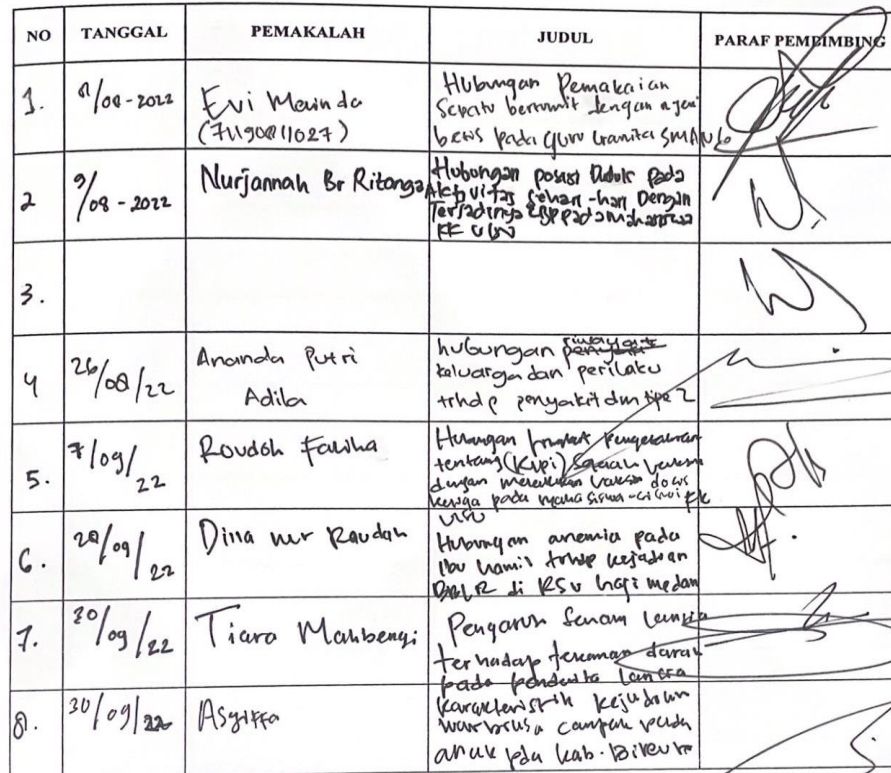 NO TANGGAL PEMAKALAH JUDUL PARAF PEMBIMBING
1. 8/08-2022 Evi Mainda
(71190811027)
Hubungan Pemakaian
Sepatu bertumit dengan nyeri
betis pada guru wanita SMAN 6
2 9/08-2022 Nurjannah Br Ritonga
Hubungan posisi Duduk pada
Aktivitas Sehari-hari Dengan
Terjadinya LBP pada mahasiswa
FK
3.
4 26/08/22 Ananda Putri
Adila
hubungan riwayat
keluarga dan perilaku
trhdp penyakit dm tipe 2
5. 7/09/22 Roudoh
Hubungan tingkat Pengetahuan
tentang (KIPI) vaksin
dengan vaksin dosis
ketiga pada mahasiswa FK
UISU
6. 28/09/22 Dina nur Raudah
Hubungan anemia pada
Ibu hamil trhdp kejadian
BBLR di RSU haji medan
7. 30/09/22 Tiara
Pengaruh Senam Lansia
terhadap tekanan darah
pada penderita Lansia
8. 30/09/22 Asyiffa
Karakteristik kejadian
campak pada
anak pda kab. Bireuen